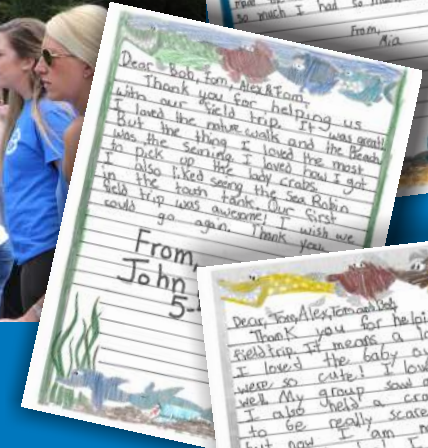 so much I had so
From,
Mia
Dear, Bob, Tom, Alex & Tom,
Thank you for helping us
with our field trip. It was great!
I loved the nature walk and the Beach
But the thing I loved the most
was the seining. I loved how I got
to pick up the lady crabs.
I also liked seeing the Sea Robin
in the touch tank. Our first
field trip was awesome! I wish we
could go again. Thank you,
From,
John
5-
Dear, Tom, Alex, Tom and Bob
Thank you for
field trip. It means a
I loved the baby
were so cute! I
well. My group saw
I also held a
to be really
but now I am